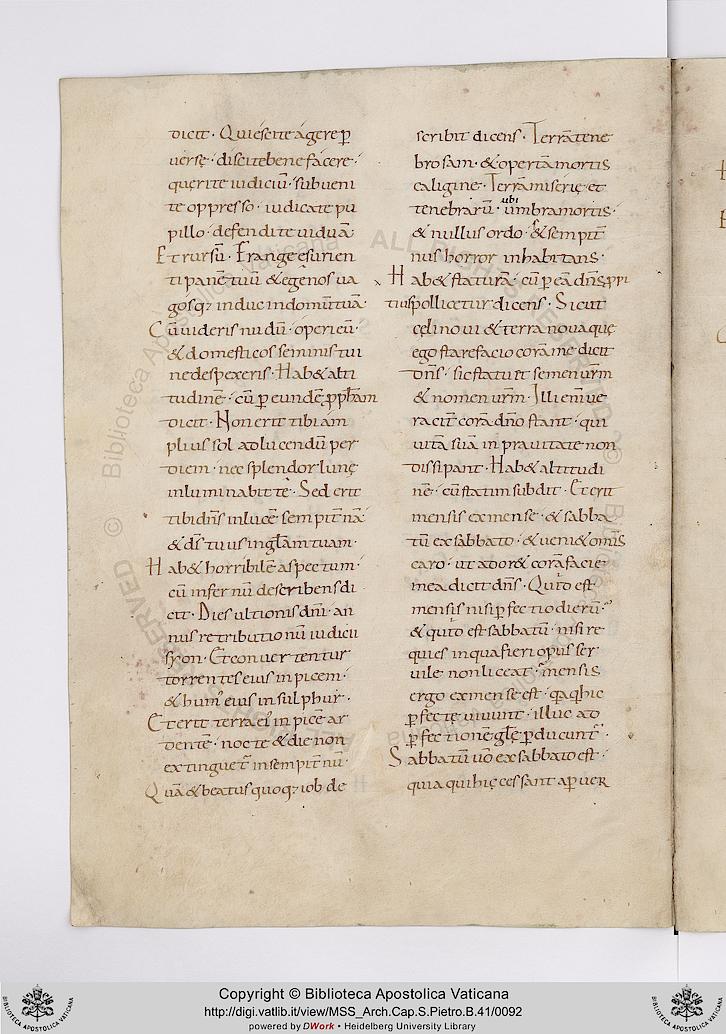 dicit · Quiescite agere p̱
uersę · discite bene facere ·
querite iudiciū · subueni
te oppresso · iudicate pu
pillo · defendite uiduā ·
Et rursū · Frange esurien
ti panē tuū & egenos ua
gosq; induc in domū tuā ·
Cū uideris nudū · operi eū ·
& domesticos seminis tui
ne despexeris · Hab& alti
tudinē · cū p̱ eundē p̱p̱h̄am
dicit · Non erit tibi iam
plius sol ad lucendū per
diem · nec splendor lunę
inluminabit te · Sed erit
tibi dn̄s in lucē sempit̄nā
& ds̄ tuus in gl̄am tuam ·
Hab& horribilē aspectum ·
cū infernū describens di
cit · Dies ultionis dn̄i · an
nus retributionū iudicii
syon · Et conuertentur
torrentes eius in picem ·
& hum' eius in sulphur ·
Et erit terra ei' in picē ar
dentē · nocte & die non
extinguet̄ in sempit̄nū ·
Quā & beatus quoq; iob de
scribit dicens · Terrā tene
brosam · & opertā mortis
caligine · Terrā miserię et
tenebrarū · ubi umbra mortis ·
& nullus ordo · & sempit̄
nus horror inhabitans ·
Hab& staturā · cū p̱ eā dn̄s p̱p̱i
tius pollicetur dicens · Sicut
cęli noui & terra noua quę
ego stare facio corā me dicit
dn̄s · sic stabit semen ur̄m
& nomen ur̄m · Illi enī ue
racit̄ corā dn̄o stant · qui
uitā suā in prauitate non
dissipant · Hab& altitudi
nē · cū statim subdit · Et erit
mensis ex mense · & sabba
tū ex sabbato · & ueni& om̄is
caro · ut ador& corā facie
mea dicit dn̄s · Quid est
mensis nisi p̱fectio dierū ·
& quid est sabbatū · nisi re
quies in qua fieri opus ser
uile non liceat · mensis
ergo ex mense est · q̄a q̄ hic
p̱fecte uiuunt · illuc ad
p̱fectionē gl̄ę p̱ducunt̄ ·
Sabbatū u̅o ex sabbato est ·
quia qui hic cessant a p̱uer
Copyright © Biblioteca Apostolica Vaticana
http://digi.vatlib.it/view/MSS_Arch.Cap.S.Pietro.B.41/0092
powered by DWork • Heidelberg University Library